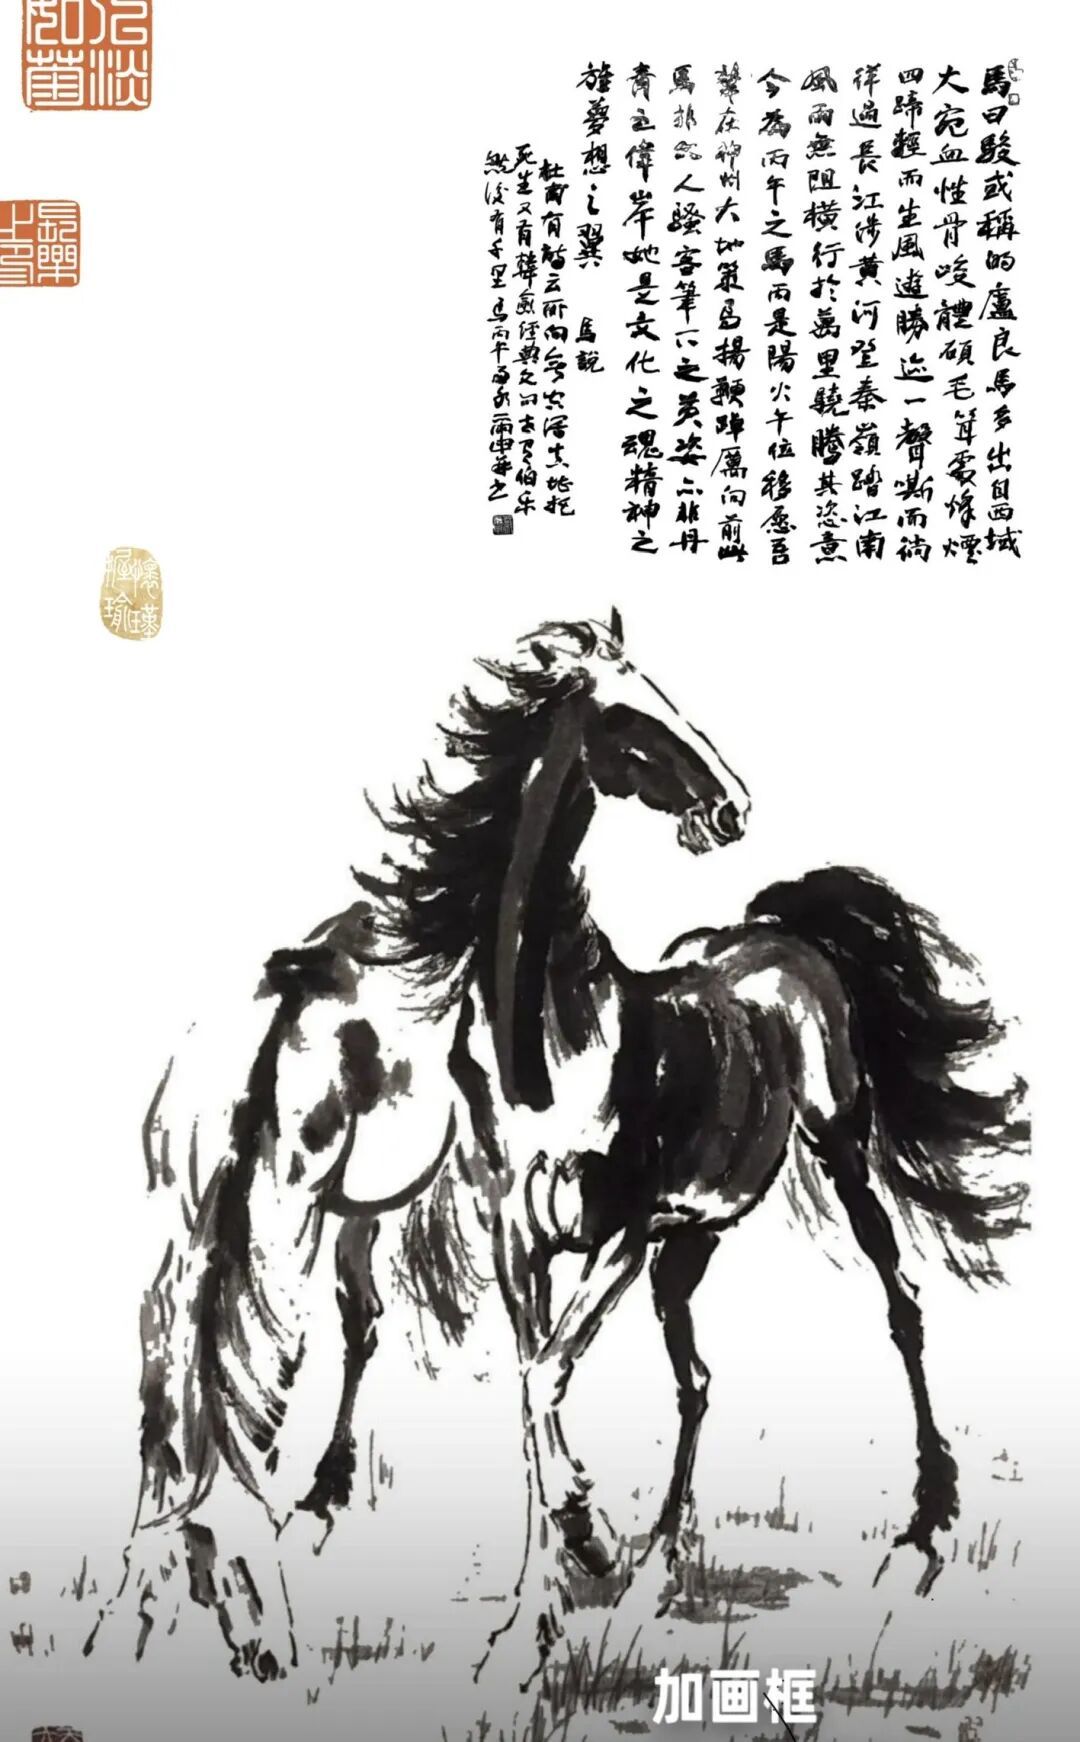 馬曰駿或稱的盧良馬多出自西域
大宛血性骨峻體碩毛聳處烽煙
四蹄輕而生風遊勝迹一聲嘶而徜
徉過長江涉黄河登秦嶺踏江南
風雨無阻橫行於萬里驍騰其恣意
今為丙午之馬丙是陽火午位移愿吾
輩在神州大地策馬揚鞭踔厲向前此
馬非人騷客筆下之英姿亦非丹
青之偉岸她是文化之魂精神之
旌夢想之翼
馬説
杜甫有詩云所向無空闊真堪托
死生又有韓愈經典之句世有伯乐
然後有千里馬丙午
人淡如菊
長樂
懷瑾握瑜
加画框